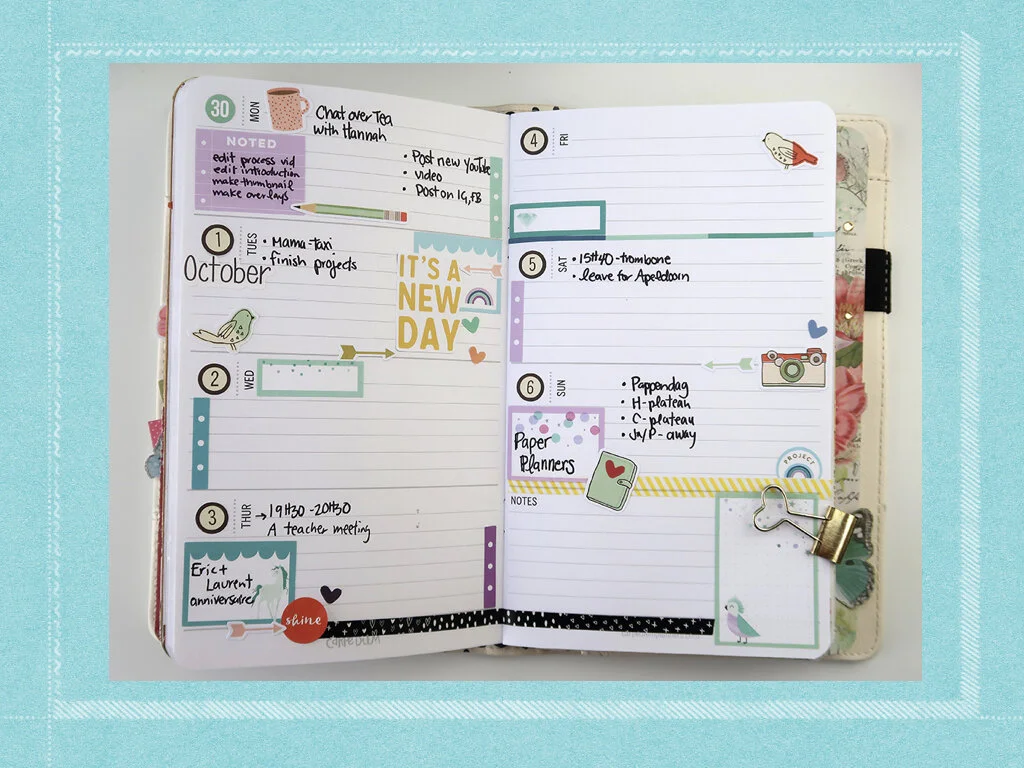 30
MON
Chat over Tea
with Hannah
NOTED
edit process vid
edit introduction
make thumbnail
make overlays
• Post new YouTube
• video
• Post on IG, FB
1
TUES
October
• Mama-taxi
• finish projects
IT'S A
NEW
DAY
2
WED
3
THUR
→ 19H30 - 20H30
A teacher meeting
Eric +
Laurent
anniversaire
shine
CARPE DIEM
4
FRI
5
SAT
• 15H40 - trombone
• leave for Apeldoorn
6
SUN
• Pappendag
• H-plateau
• C-plateau
• Jn/P - away
Paper
Planners
PROJECT
NOTES